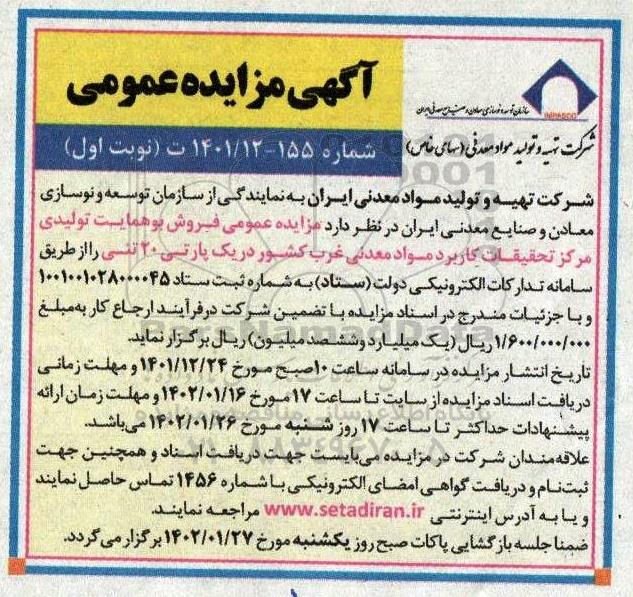 آگهی مزایده عمومی
شماره ۱۵۵-۱۴۰۱/۱۲ ت (نوبت اول)
IMPASCO
سازمان توسعه و نوسازی معادن و صنایع معدنی ایران
شرکت تهیه و تولید مواد معدنی (سهامی خاص)
شرکت تهیه و تولید مواد معدنی ایران به نمایندگی از سازمان توسعه و نوسازی
معادن و صنایع معدنی ایران در نظر دارد مزایده عمومی فروش بوهمایت تولیدی
مرکز تحقیقات کاربرد مواد معدنی غرب کشور در یک پارتی ۲۰ تنی را از طریق
سامانه تدارکات الکترونیکی دولت (ستاد) به شماره ثبت ستاد ۱۰۰۱۰۰۱۰۲۸۰۰۰۰۴۵
و با جزئیات مندرج در اسناد مزایده با تضمین شرکت در فرآیند ارجاع کار به مبلغ
۱/۶۰۰/۰۰۰/۰۰۰ ریال (یک میلیارد و ششصد میلیون) ریال برگزار نماید.
تاریخ انتشار مزایده در سامانه ساعت ۱۰ صبح مورخ ۱۴۰۱/۱۲/۲۴ و مهلت زمانی
دریافت اسناد مزایده از سایت تا ساعت ۱۷ مورخ ۱۴۰۲/۰۱/۱۶ و مهلت زمان ارائه
پیشنهادات حداکثر تا ساعت ۱۷ روز شنبه مورخ ۱۴۰۲/۰۱/۲۶ می‌باشد.
علاقه‌مندان شرکت در مزایده می‌بایست جهت دریافت اسناد و همچنین جهت
ثبت‌نام و دریافت گواهی امضای الکترونیکی با شماره ۱۴۵۶ تماس حاصل نمایند
و یا به آدرس اینترنتی www.setadiran.ir مراجعه نمایند.
ضمنا جلسه بازگشایی پاکات صبح روز یکشنبه مورخ ۱۴۰۲/۰۱/۲۷ برگزار می‌گردد.